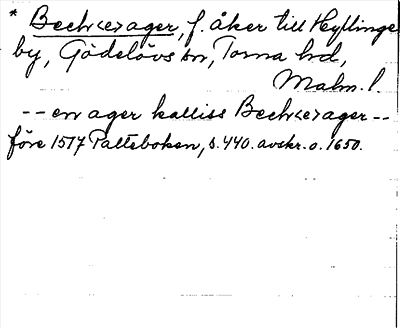 * Bech<e>ager, f. åker till Hyllinge
by, Gödelövs sn, Torna hd,
Malm. l.
-- en ager kalliss Bech<e>ager --
före 1517 Palteboken, s. 440. avskr. o. 1650.